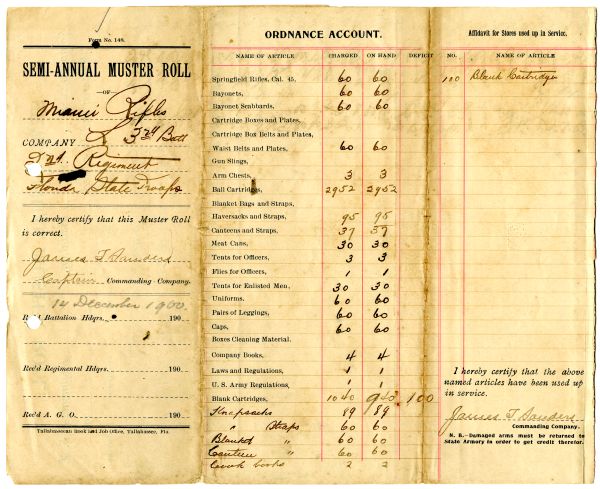 Form No. 148.
SEMI-ANNUAL MUSTER ROLL
—OF—
Miami Rifles
COMPANY L 3rd Batt
Regiment
Florida State Troops
I hereby certify that this Muster Roll
is correct.
James T Sanders
Captain Commanding Company.
14 December 1900
Rec'd Battalion Hdqrs. 190
Rec'd Regimental Hdqrs. 190
Rec'd A. G. O. 190
Tallahassean Book and Job Office, Tallahassee, Fla.
ORDNANCE ACCOUNT.
NAME OF ARTICLE CHARGED ON HAND DEFICIT
Springfield Rifles, Cal. 45, 60 60
Bayonets, 60 60
Bayonet Scabbards, 60 60
Cartridge Boxes and Plates,
Cartridge Box Belts and Plates,
Waist Belts and Plates, 60 60
Gun Slings,
Arm Chests, 3 3
Ball Cartridges, 2952 2952
Blanket Bags and Straps,
Haversacks and Straps, 95 95
Canteens and Straps, 37 37
Meat Cans, 30 30
Tents for Officers, 3 3
Flies for Officers, 1 1
Tents for Enlisted Men, 30 30
Uniforms, 60 60
Pairs of Leggings, 60 60
Caps, 60 60
Boxes Cleaning Material.
Company Books, 4 4
Laws and Regulations, 1 1
U. S. Army Regulations, 1 1
Blank Cartridges, 1040 940 100
Knapsacks 89 89
" Straps 60 60
Blanket " 60 60
Canteen " 60 60
Cook books 2 2
Affidavit for Stores used up in Service.
NO. NAME OF ARTICLE
100 Blank Cartridges
I hereby certify that the above
named articles have been used up
in service.
James T Sanders
Commanding Company.
N. B.—Damaged arms must be returned to
State Armory in order to get credit therefor.